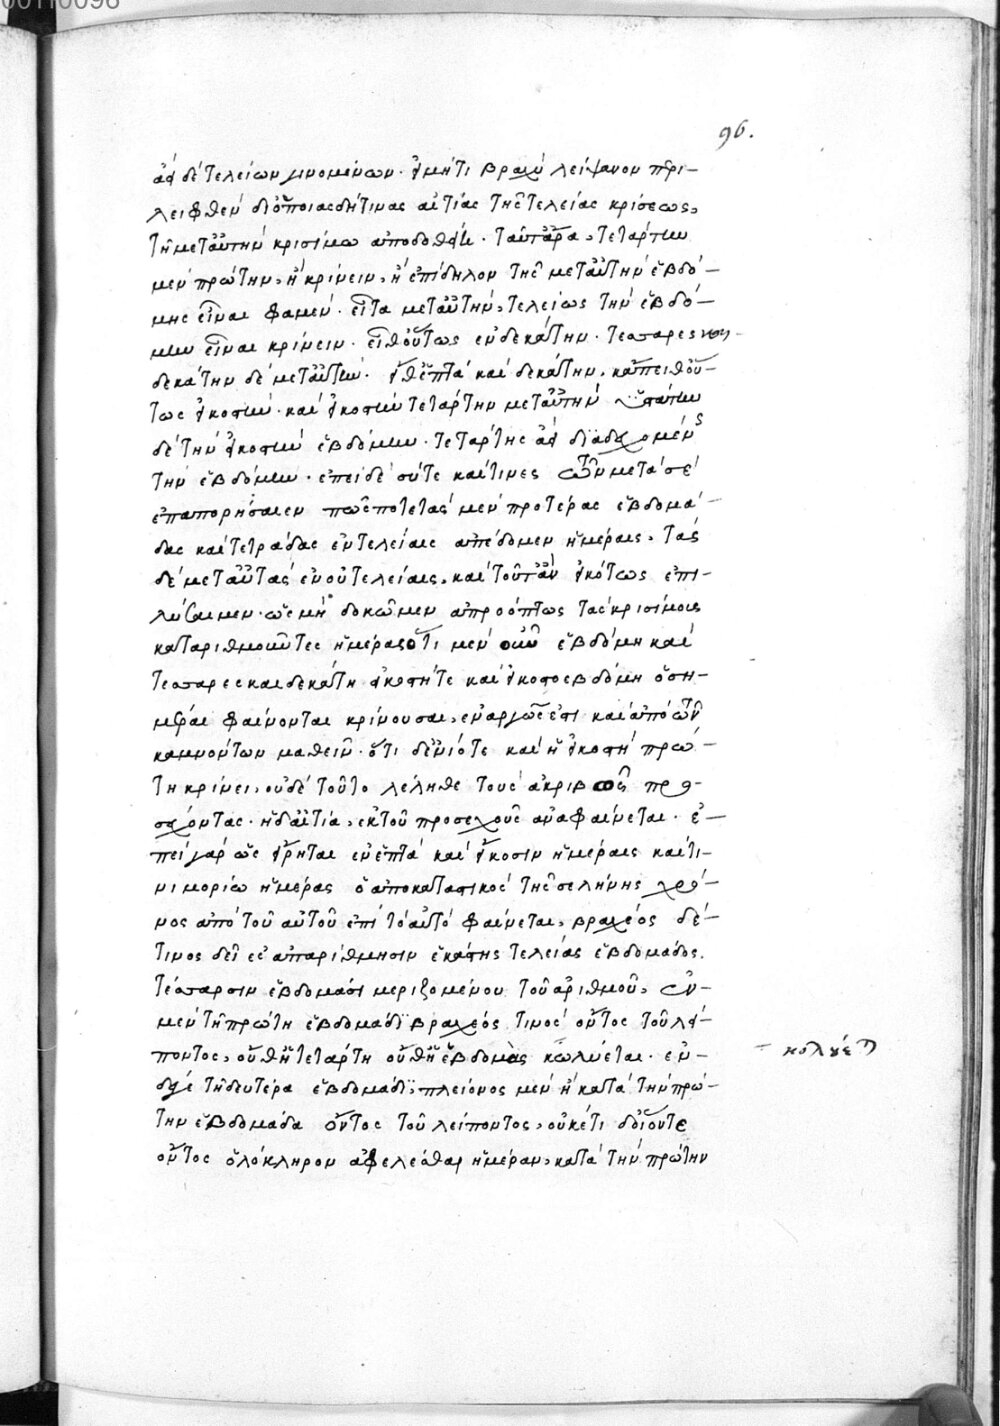 00110096
96.
ἀεὶ δὲ τελείων γινομένων. εἰ μήτι βραχὺ λείψανον περι-
λειφθὲν δι' ὁποιασδήτινας αἰτίας τῆς τελείας κρίσεως,
τῇ μετ' αὐτὴν κρισίμω ἀποδοθείη. ταύτ' ἄρα, τετάρτην
μὲν πρώτην, ἢ κρίνειν, ἢ ἐπίδηλον τῆς μετ' αὐτὴν ἑβδό-
μης εἶναι φαμέν. εἶτα μετ' αὐτὴν, τελείως τὴν ἑβδό-
μην εἶναι κρίνειν. εἶθ' οὕτως ἑνδεκάτην. τεσσαρες και-
δεκάτην δὲ μετ' αὐτήν. εἶθ' ἑπτὰ καὶ δεκάτην. κἄπειθ' οὕ-
τως εἰκοστήν. καὶ εἰκοστὴν τετάρτην μετ' αὐτὴν
δὲ τὴν εἰκοστὴν ἑβδόμην. τετάρτης ἀεὶ διαδεχομένης
τὴν ἑβδόμην. ἐπεὶ δὲ σύτε καὶ τινες τῶν μετὰ σὲ
ἐπαπορήσαιεν πῶς ποτε τὰς μὲν προτέρας ἑβδομά-
δας καὶ τετράδας ἐν τελείαις ἀπέδομεν ἡμέραις. τὰς
δὲ μετ' αὐτὰς ἐν οὐ τελείαις. καὶ τοῦτ' ἂν εἰκότως ἐπι-
λύσαιμεν. ὡς μὴ δοκῶμεν ἀπροόπτως τὰς κρισίμους
καταριθμοῦντες ἡμέρας ὅτι μὲν οὖν ἑβδόμη καὶ
τεσσαρες και δεκάτη εἰκοστή τε καὶ εἰκοστοεβδόμη ὅση-
μέραι φαίνονται κρίνουσαι. ἐναργῶς ἐστι καὶ ἀπὸ τῶν
καμνόντων μαθεῖν. ὅτι δ' ἐνίοτε καὶ ἡ εἰκοστὴ πρώ-
τη κρίνει, οὐδὲ τοῦτο λέληθε τοὺς ἀκριβῶς προσ-
σχόντας. ἡ δ' αἰτία, ἐκ τοῦ προσεχοῦς ἀναφαίνεται. ἐ-
πεὶ γὰρ ὡς εἴρηται ἐν ἑπτὰ καὶ εἴκοσιν ἡμέραις καὶ τι-
νι μορίω ἡμέρας ὁ ἀποκαταστικὸς τῆς σελήνης χρό-
νος ἀπὸ τοῦ αὐτοῦ ἐπὶ τὸ αὐτὸ φαίνεται, βραχέος δέ-
τινος δεῖ ἐς ἀπαρίθμησιν ἑκάστης τελείας ἑβδομάδος.
τέσσαρσιν ἑβδομάσι μεριζομένου τοῦ ἀριθμοῦ, ἐν
μὲν τῇ πρώτη ἑβδομάδι βραχέός τινος ὄντος τοῦ λεί-
ποντος, οὔθ' ἡ τετάρτη οὔθ' ἡ ἑβδομὰς κωλύεται. ἐν
δέ γε τῇ δευτέρα ἑβδομάδι, πλείονος μὲν ἢ κατὰ τὴν πρώ-
την ἑβδομάδα ὄντος τοῦ λείποντος, οὐκέτι δ' οἵουτε
ὄντος ὁλόκληρον ἀφελέσθαι ἡμέραν, κατὰ τὴν πρώτην